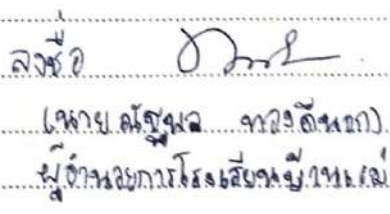 ลงชื่อ
(นาย ณัฐพล ทองดีนอก)
ผู้อำนวยการโรงเรียนบ้านแม่